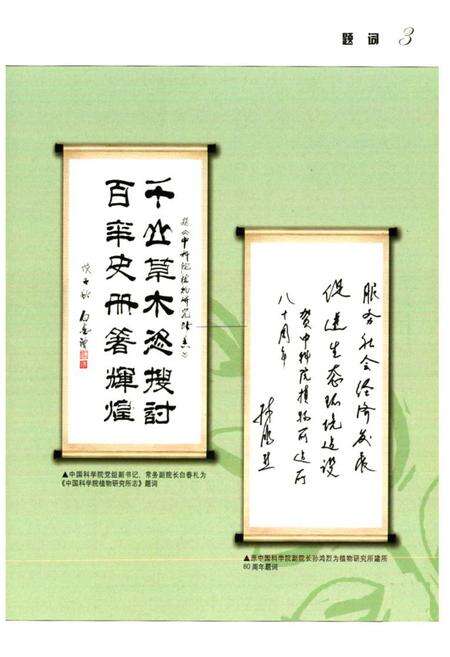 题词 3
千山草木恣搜討
百年史册著輝煌
服务社会经济发展
促进生态环境建设
贺中科院植物所建所
八十周年
孙鸿烈
▲中国科学院党组副书记、常务副院长白春礼为
《中国科学院植物研究所志》题词
▲原中国科学院副院长孙鸿烈为植物研究所建所
80周年题词